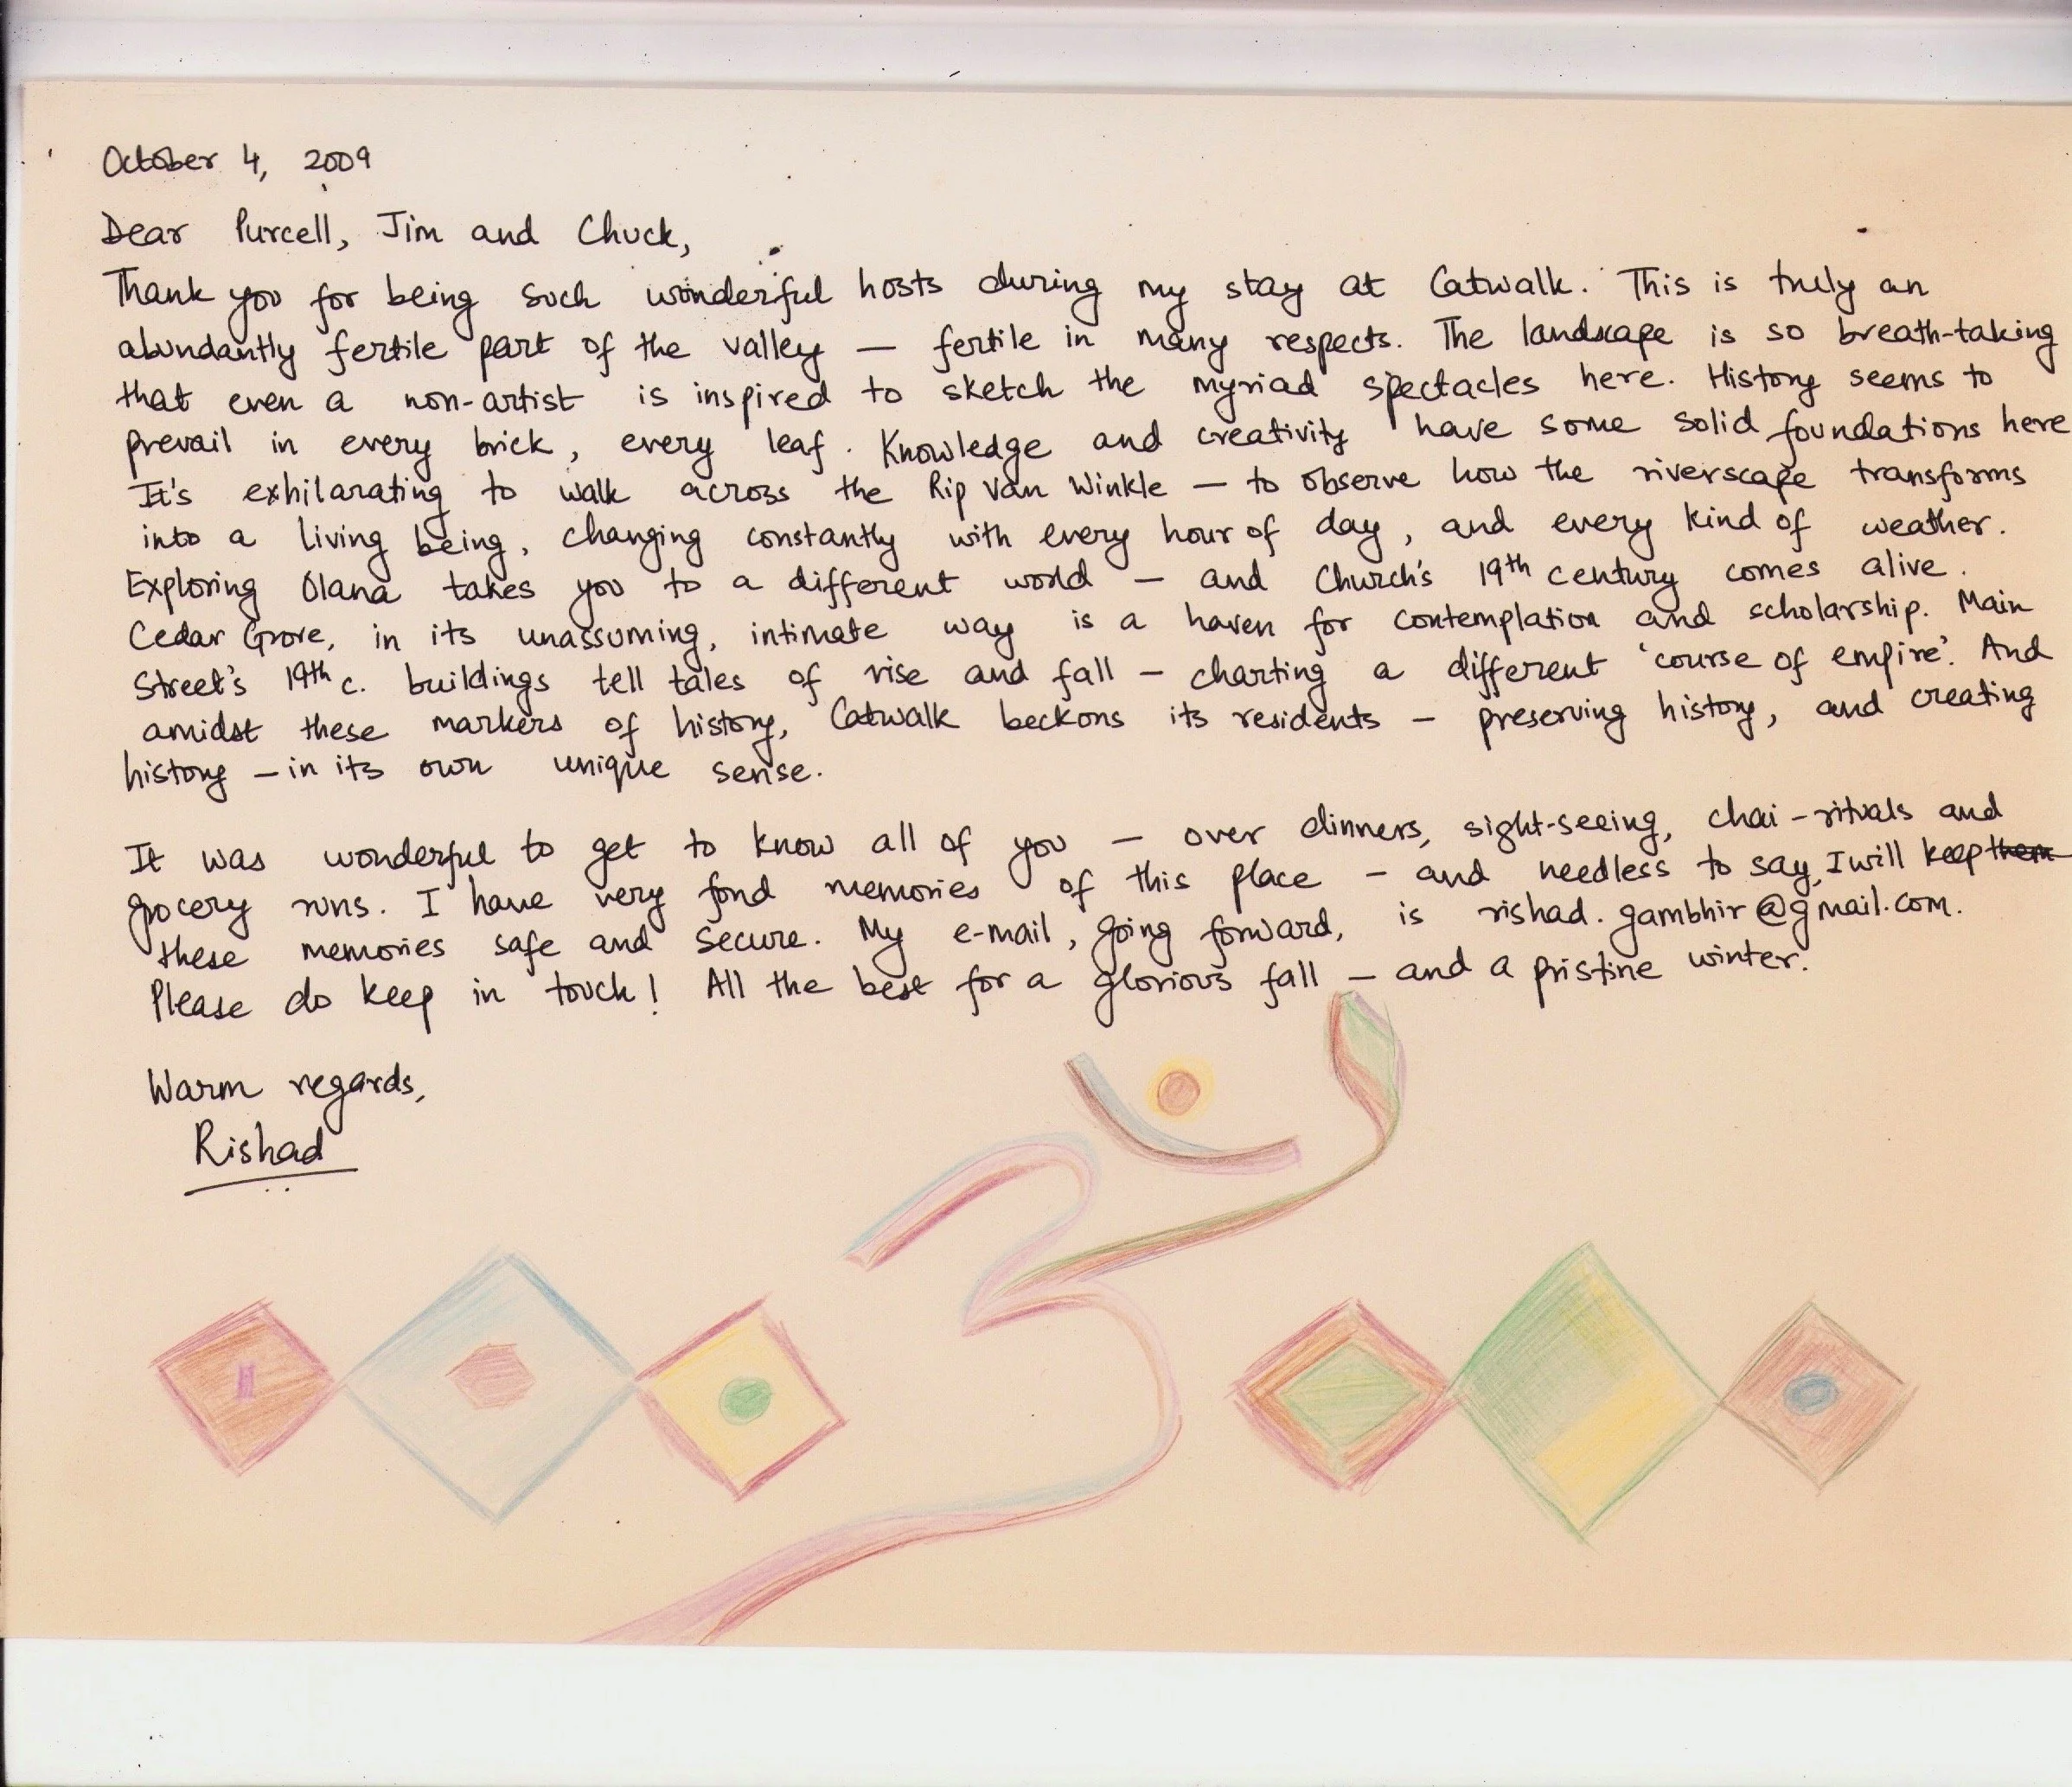 October 4, 2009
Dear Purcell, Jim and Chuck,
Thank you for being such wonderful hosts during my stay at Catwalk. This is truly an
abundantly fertile part of the valley — fertile in many respects. The landscape is so breath-taking
that even a non-artist is inspired to sketch the myriad spectacles here. History seems to
prevail in every brick, every leaf. Knowledge and creativity have some solid foundations here
It's exhilarating to walk across the Rip Van Winkle — to observe how the riverscape transforms
into a living being, changing constantly with every hour of day, and every kind of weather.
Exploring Olana takes you to a different world — and Church's 19th century comes alive.
Cedar Grove, in its unassuming, intimate way is a haven for contemplation and scholarship. Main
Street's 19th c. buildings tell tales of rise and fall – charting a different 'course of empire'. And
amidst these markers of history, Catwalk beckons its residents – preserving history, and creating
history – in its own unique sense.
It was wonderful to get to know all of you – over dinners, sight-seeing, chai-rituals and
grocery runs. I have very fond memories of this place – and needless to say, I will keep them
these memories safe and secure. My e-mail, going forward, is rishad.gambhir@gmail.com.
Please do keep in touch! All the best for a glorious fall – and a pristine winter.
Warm regards,
Rishad
ॐ